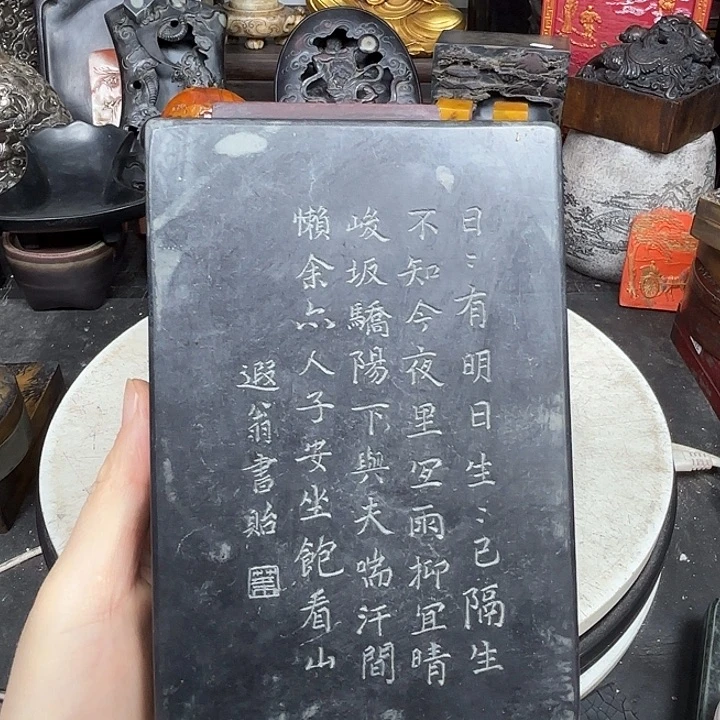 日〻有明日生〻已隔生
不知今夜里冝雨抑宜晴
峻坂驕陽下與夫喘汗間
懶余亦人子安坐飽看山
遐翁書貽